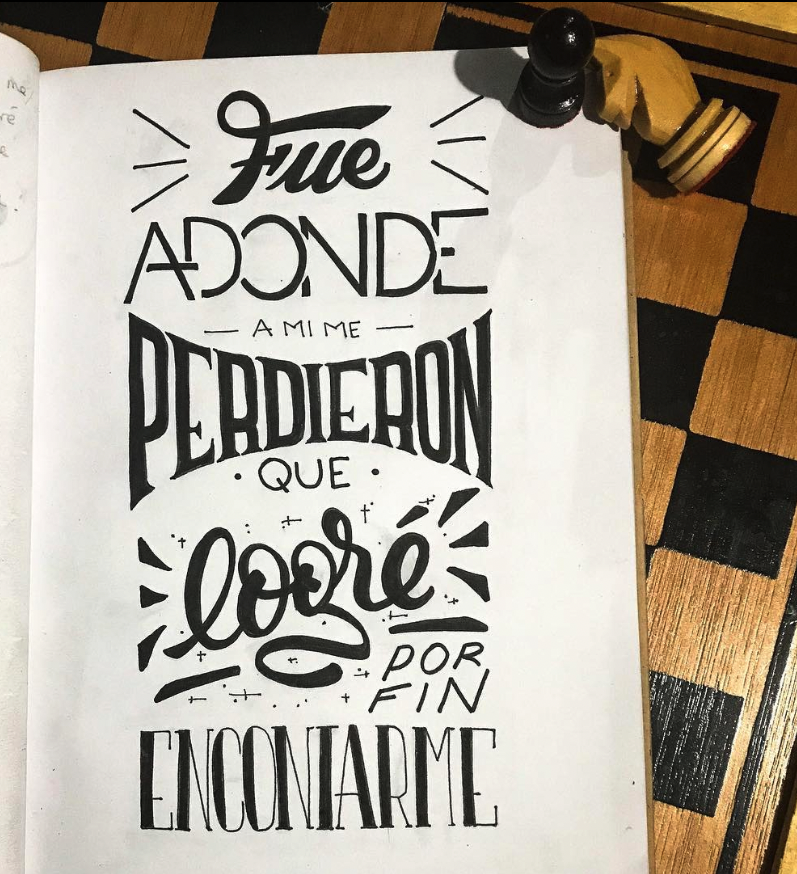 Fue
ADONDE
A MI ME
PERDIERON
QUE
logré
POR
FIN
ENCONTARME